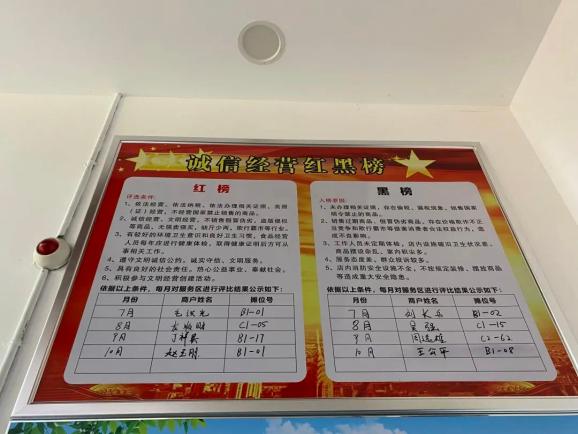 诚信经营红黑榜
红 榜
评选条件：
1、依法经营、依法纳税、依法办理相关证照，亮照
（证）经营，不经营国家禁止销售的商品。
2、诚信经营，文明经营，不销售假冒伪劣、盗版侵权
等商品，无强卖强买，缺斤少两，欺行霸市等行业。
3、有较好的环境卫生意识和良好卫生习惯，食品经营
人员每年度进行健康体检，取得健康证明后方可从
事相关工作。
4、遵守文明诚信公约，诚实守信、文明服务。
5、具有良好的社会责任，热心公益事业，奉献社会。
6、积极参与文明经营创建活动。
依据以上条件，每月对服务区进行评比结果公示如下：
月份 商户姓名 摊位号
7月 B1-01
8月 C1-05
9月 B1-17
10月 B1-01
黑 榜
入榜原因：
1、未办理相关证照，存在偷税、漏税现象，销售国家
明令禁止的商品。
2、销售过期商品，假冒伪劣商品，存在价格欺诈不正
当竞争和欺行霸市等损害消费者合法权益行为，造
成不良影响。
3、工作人员未定期体检，店内设施破旧卫生状况差，
商品摆设杂乱，室内积尘多。
4、服务态度差，群众投诉较多。
5、店内消防安全设施不全，不按规定装修、摆放商品
等造成重大安全隐患。
依据以上条件，每月对服务区进行评比结果公示如下：
月份 商户姓名 摊位号
7月 B1-02
8月 吴强 C1-15
9月 C2-62
10月 B1-08